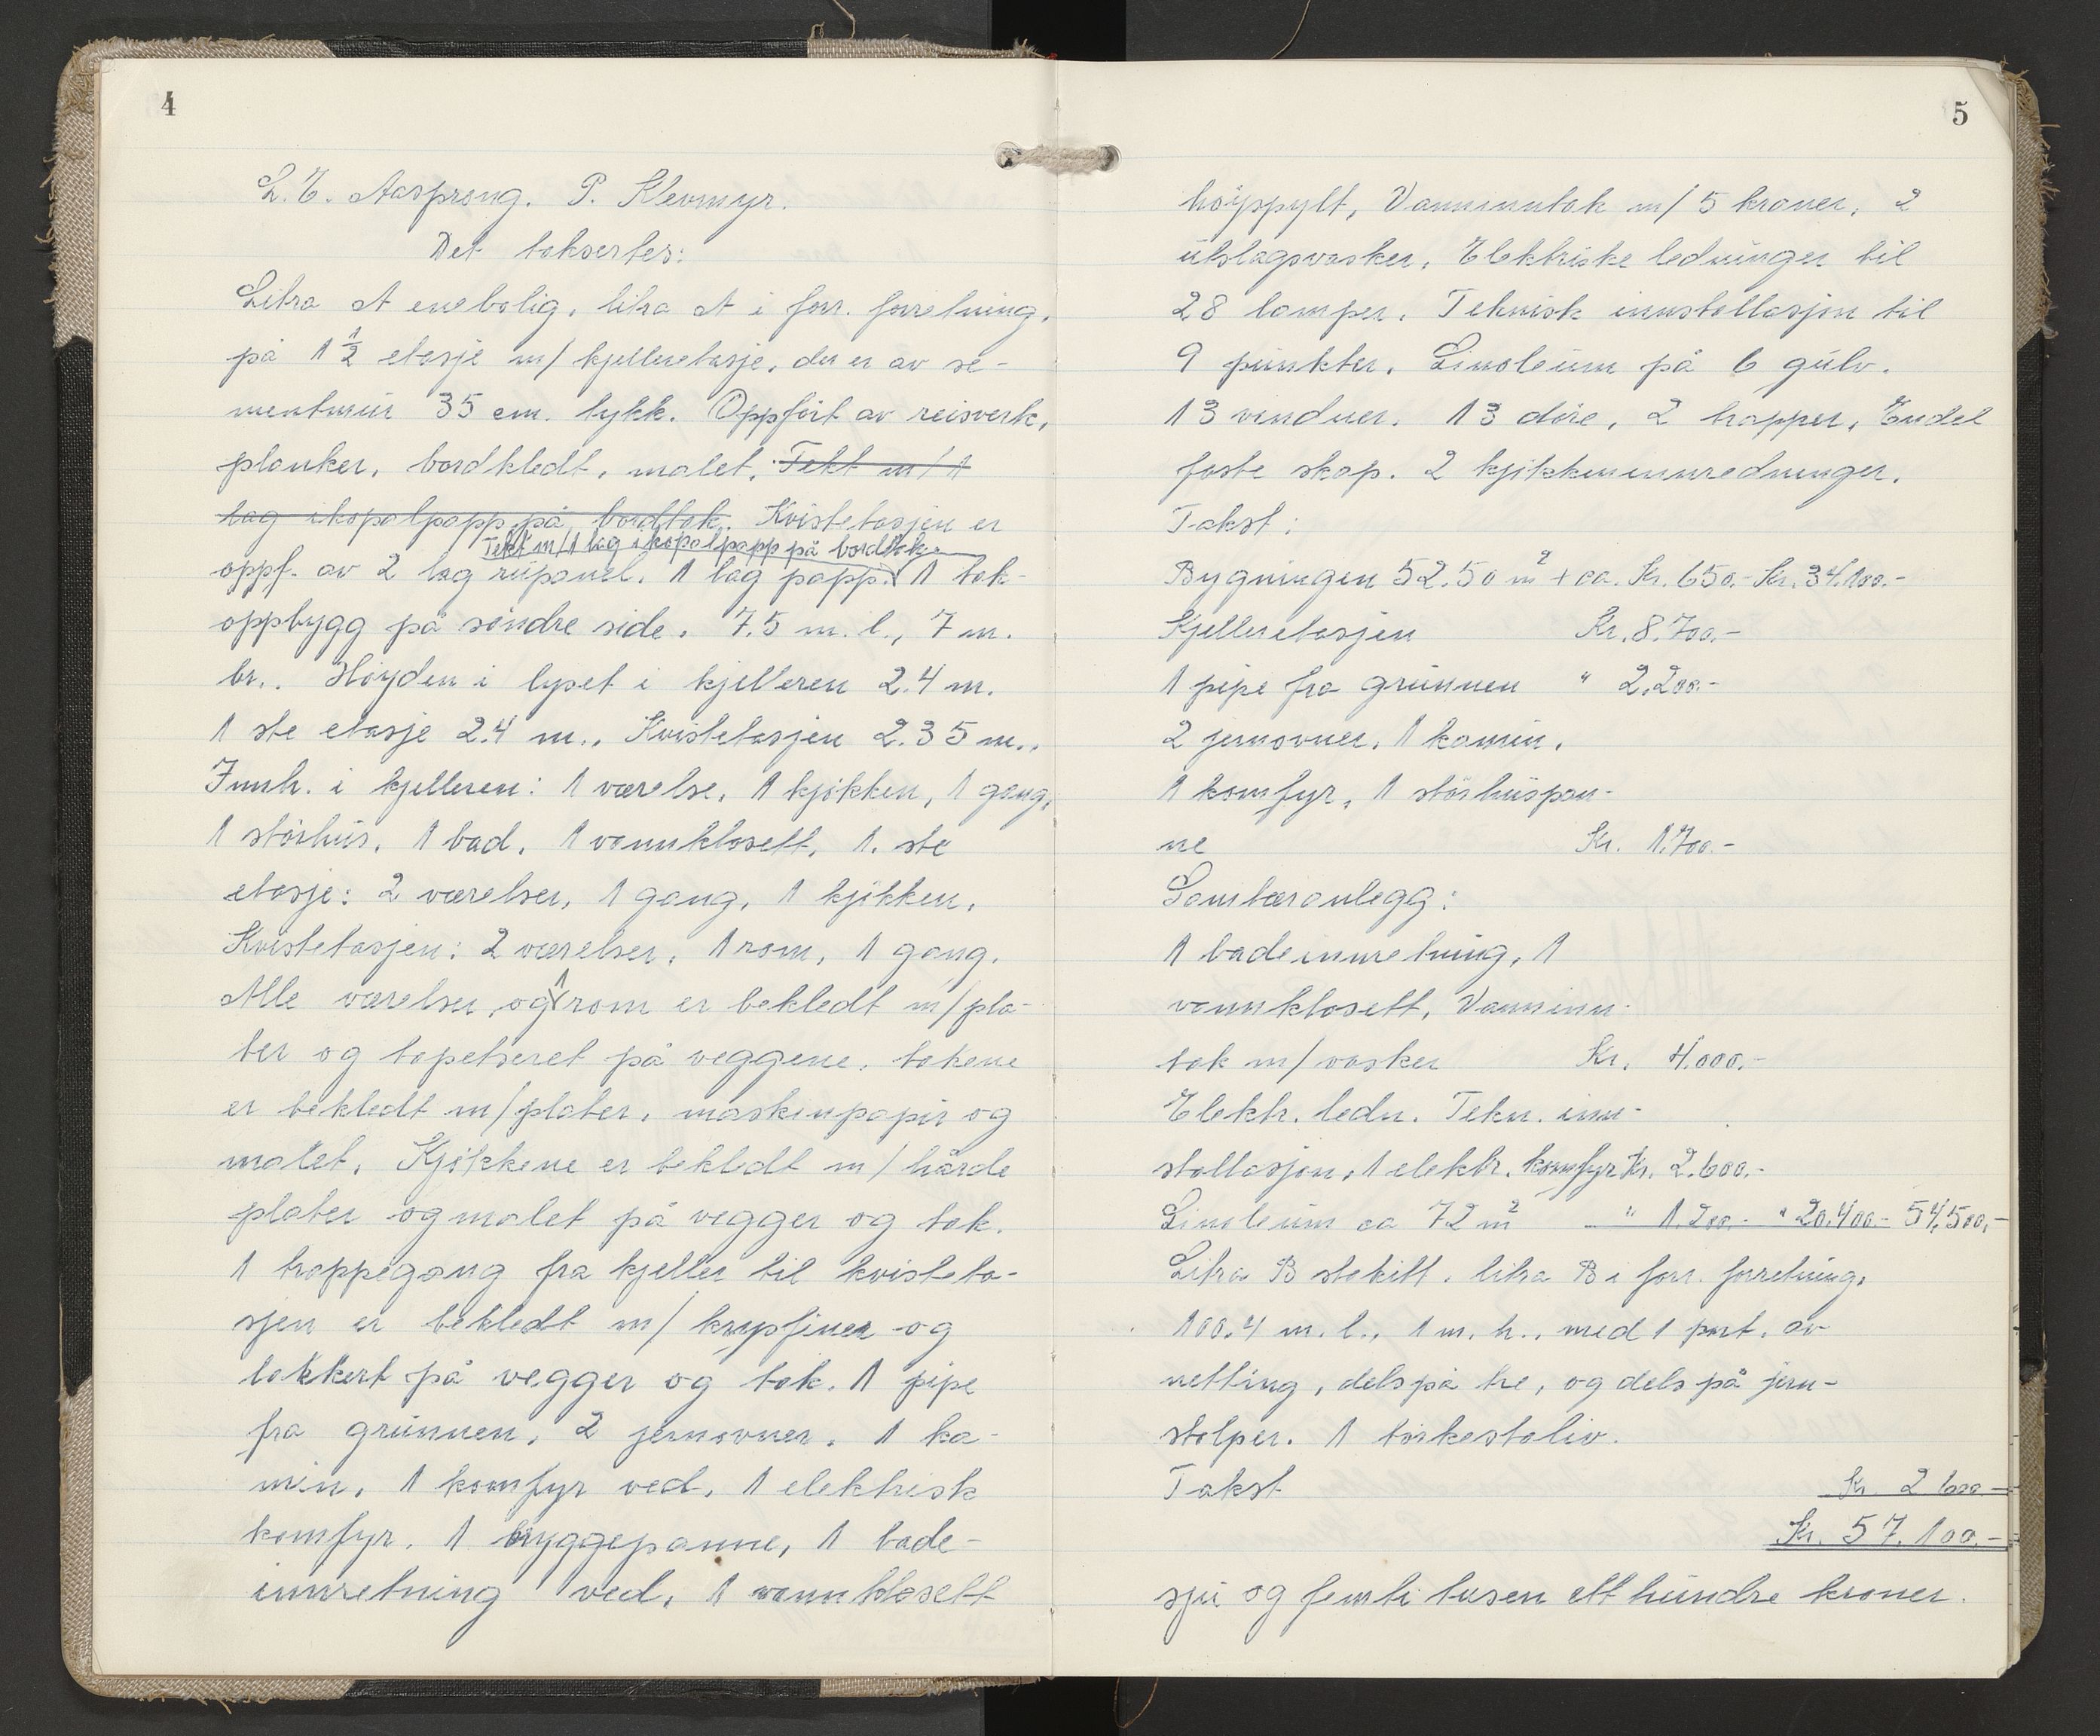 4
L. E. Aasprong. P. Klevmyr.
Det takserles:
Litra A enebolig, litra A i forr. forretning,
på 1 1/2 etasje m/ kjelleretasje, der er av se-
mentmur 35 cm. tykk. Oppfört av reisverk,
planker, bordkledt, malet. Tekt m/ 1
lag ikopalpapp på bordtak. Kvistetasjen er
Tekt m/ 1 lag ikopalpapp på bordtak.
oppf. av 2 lag rupanel. 1 lag papp. 1 tak-
oppbygg på söndre side. 7.5 m. l., 7 m.
br.. Höyden i lyset i kjelleren 2.4 m.
1 ste etasje 2.4 m., Kvistetasjen 2.35 m..
Innh. i kjelleren: 1 værelse, 1 kjökken, 1 gang,
1 störhus, 1 bad, 1 vannklosett, 1. ste
etasje: 2 værelser, 1 gang, 1 kjökken.
Kvistetasjen: 2 værelser, 1 rom, 1 gang.
Alle værelser og 1 rom er bekledt m/ pla-
ter og tapetseret på veggene, takene
er bekledt m/ plater, maskinpapir og
malet. Kjökkene er bekledt m/ hårde
plater og malet på vegger og tak.
1 trappegang fra kjeller til kvisteta-
sjen er bekledt m/ krysfiner og
lakkert på vegger og tak. 1 pipe
fra grunnen, 2 jernovner, 1 ka-
min, 1 komfyr ved, 1 elektrisk
komfyr. 1 bryggepanne, 1 bade-
innretning ved, 1 vannklosett
5
höyspylt, Vanninntak m/ 5 kraner, 2
utslagsvasker, Elektriske ledninger til
28 lamper. Teknisk innstallasjon til
9 punkter. Linoleum på 6 gulv.
13 vinduer. 13 döre, 2 trapper, Endel
faste skap. 2 kjökkeninnredninger.
Takst:
Bygningen 52.50 m² + ca. Kr. 650.- Kr. 34.100.-
Kjelleretasjen Kr. 8.700.-
1 pipe fra grunnen " 2.200.-
2 jernovner, 1 kamin,
1 komfyr, 1 störhuspan-
ne Kr. 1.700.-
Sanitæranlegg:
1 badeinnretning, 1
vannklosett, Vanninn-
tak m/ vasker Kr. 4.000.-
Elektr. ledn. Tekn. inn-
stallasjon, 1 elektr. komfyr Kr. 2.600.-
Linoleum ca 72 m² " 1.200.- " 20.400.- 54.500.-
Litra B stakitt, litra B i forr. forretning,
100.4 m. l., 1 m. h., med 1 port, av
netting, dels på tre, og dels på jern-
stolper. 1 törkestativ.
Takst Kr. 2 600.-
Kr. 57.100.-
sju og femti tusen ett hundre kroner.